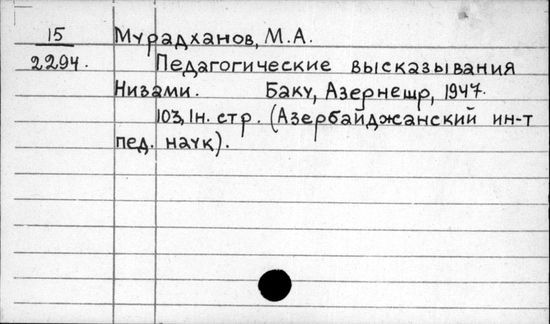 15 Мурадханов, М.А.
2294. Педагогические высказывания
Низами. Баку, Азернешр, 1947.
103, 1н. стр. (Азербайджанский ин-т
пед. наук).